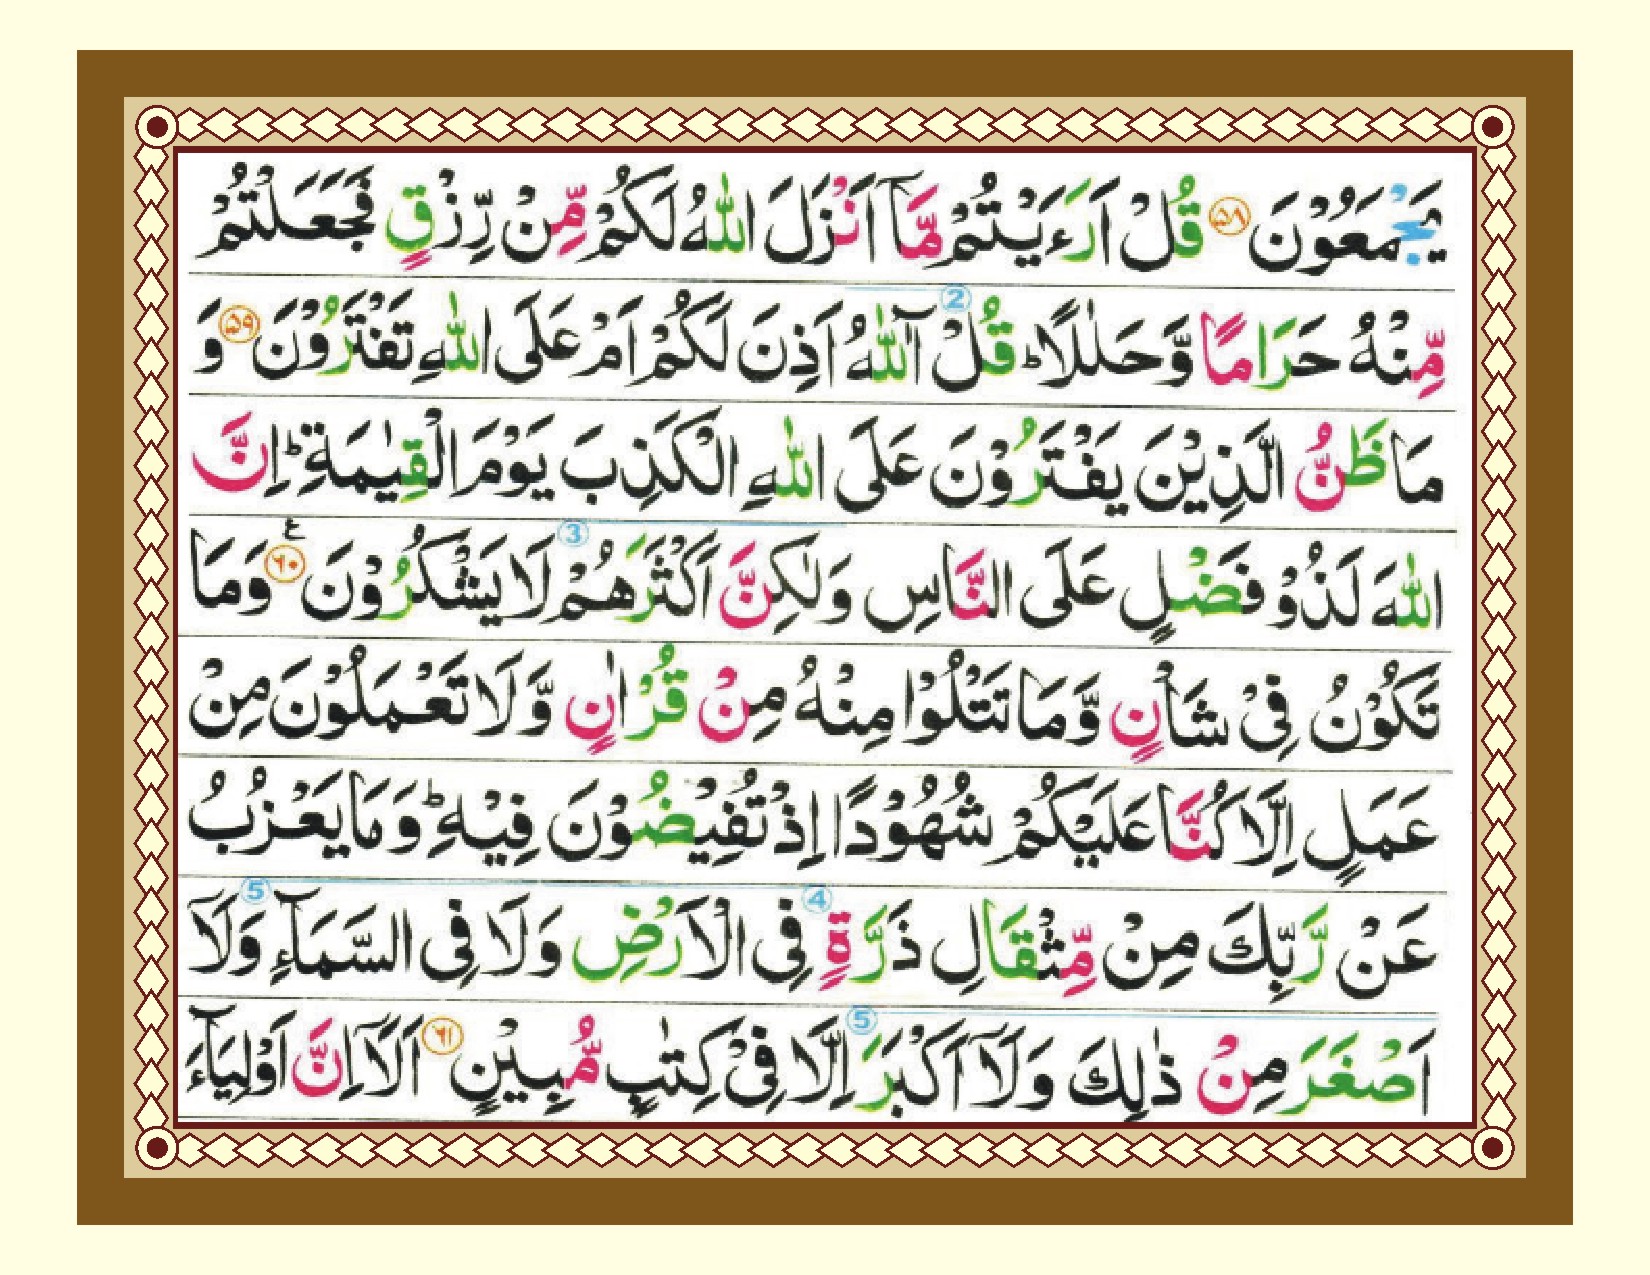 يَجْمَعُوْنَ ﴿۵۸﴾ قُلْ اَرَءَيْتُمْ مَّاۤ اَنْزَلَ اللّٰهُ لَكُمْ مِّنْ رِّزْقٍ فَجَعَلْتُمْ
② مِّنْهُ حَرَامًا وَّحَلٰلًا ؕ قُلْ آٰللّٰهُ اَذِنَ لَكُمْ اَمْ عَلَى اللّٰهِ تَفْتَرُوْنَ ﴿۵۹﴾ وَ
مَا ظَنُّ الَّذِيْنَ يَفْتَرُوْنَ عَلَى اللّٰهِ الْكَذِبَ يَوْمَ الْقِيٰمَةِ ؕ اِنَّ
③ اللّٰهَ لَذُوْ فَضْلٍ عَلَى النَّاسِ وَلٰكِنَّ اَكْثَرَهُمْ لَا يَشْكُرُوْنَ ﴿۶۰﴾ ع وَمَا
تَكُوْنُ فِىْ شَاْنٍ وَّمَا تَتْلُوْا مِنْهُ مِنْ قُرْاٰنٍ وَّلَا تَعْمَلُوْنَ مِنْ
عَمَلٍ اِلَّا كُنَّا عَلَيْكُمْ شُهُوْدًا اِذْ تُفِيْضُوْنَ فِيْهِ ؕ وَمَا يَعْزُبُ
عَنْ رَّبِّكَ مِنْ مِّثْقَالِ ذَرَّةٍ ④ فِى الْاَرْضِ وَلَا فِى السَّمَآءِ ⑤ وَلَاۤ
اَصْغَرَ مِنْ ذٰلِكَ وَلَاۤ اَكْبَرَ ⑤ اِلَّا فِىْ كِتٰبٍ مُّبِيْنٍ ﴿۶۱﴾ اَلَاۤ اِنَّ اَوْلِيَآءَ